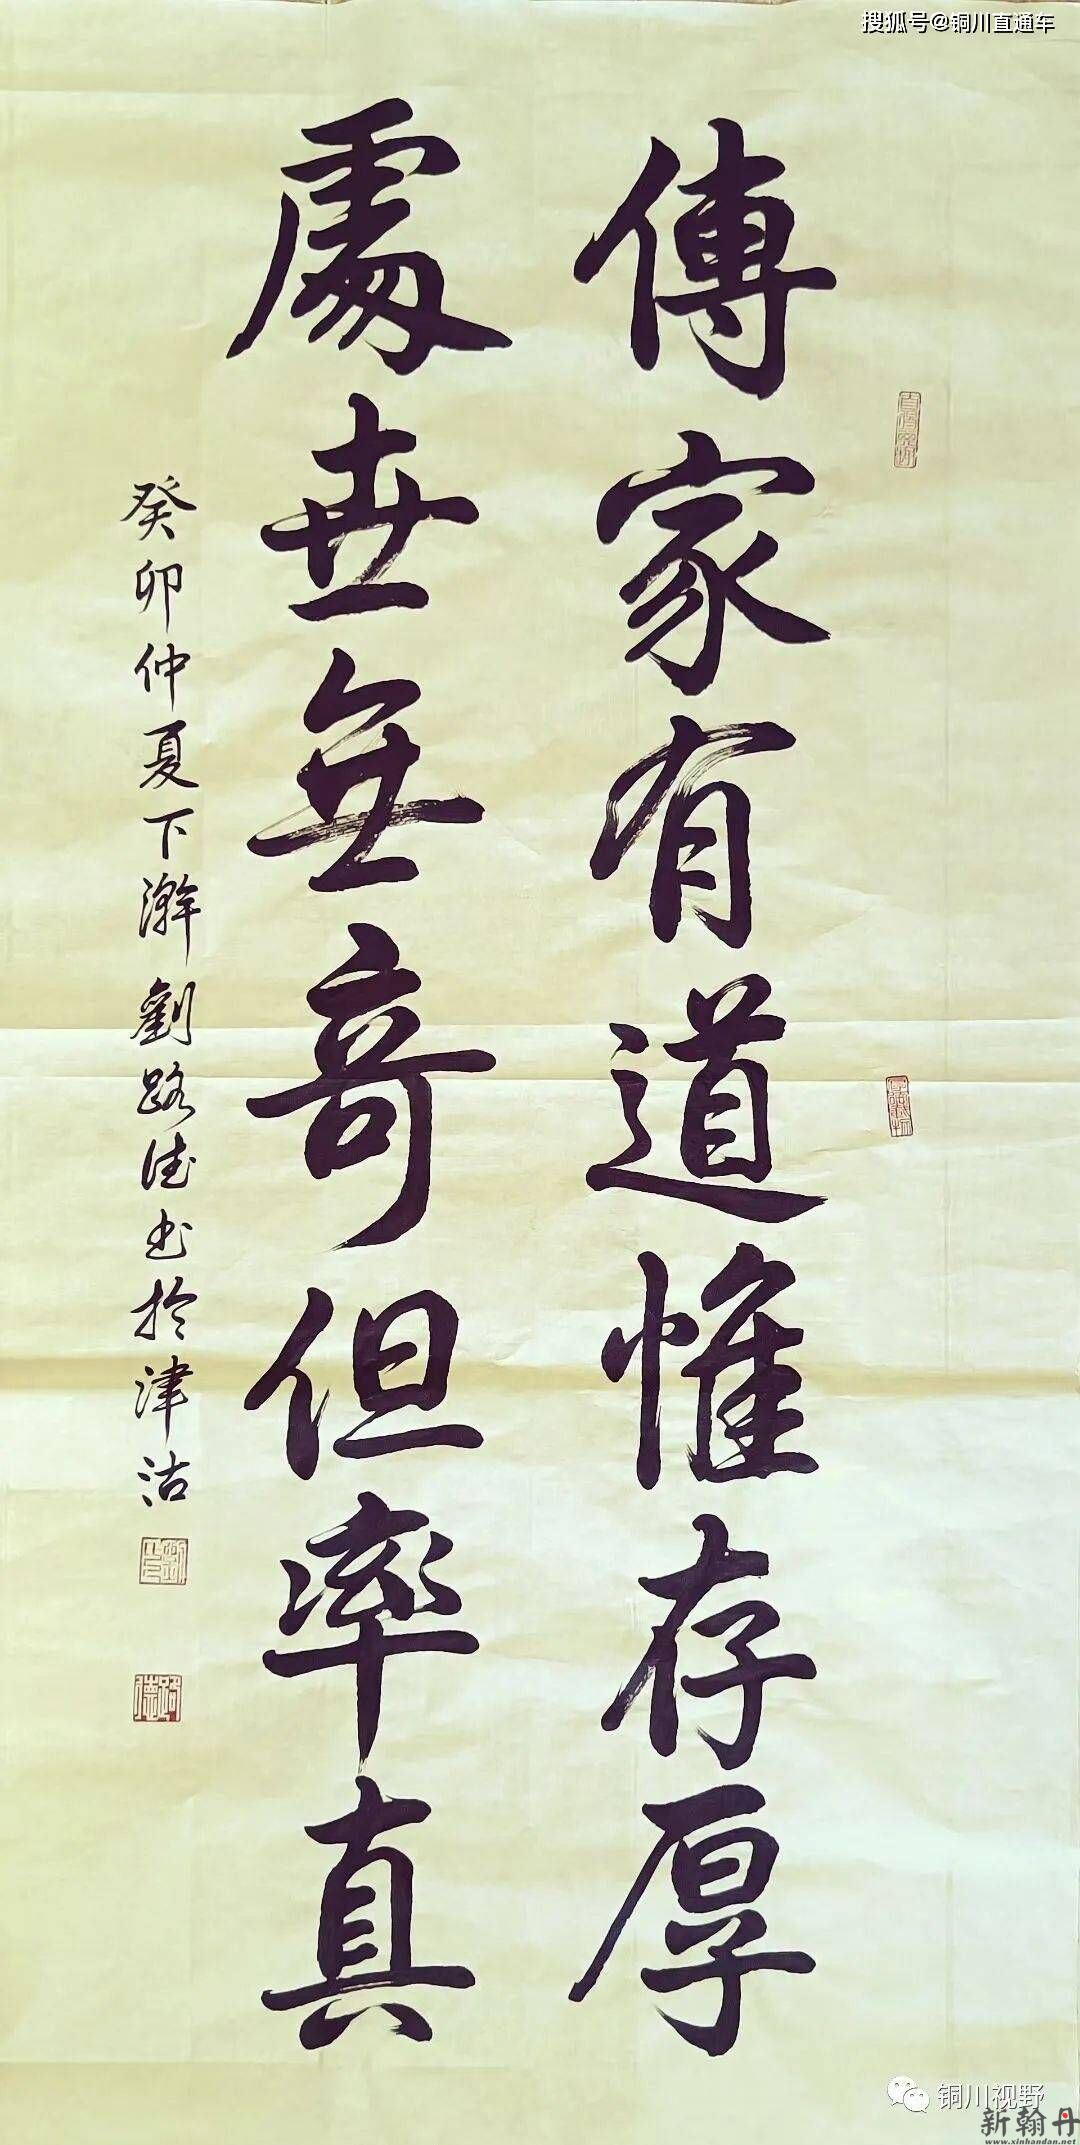 搜狐号@铜川直通车
傳家有道惟存厚
處世無奇但率真
癸卯仲夏下澣劉路德书於津沽
铜川视野
新翰丹
www.xinhandan.net